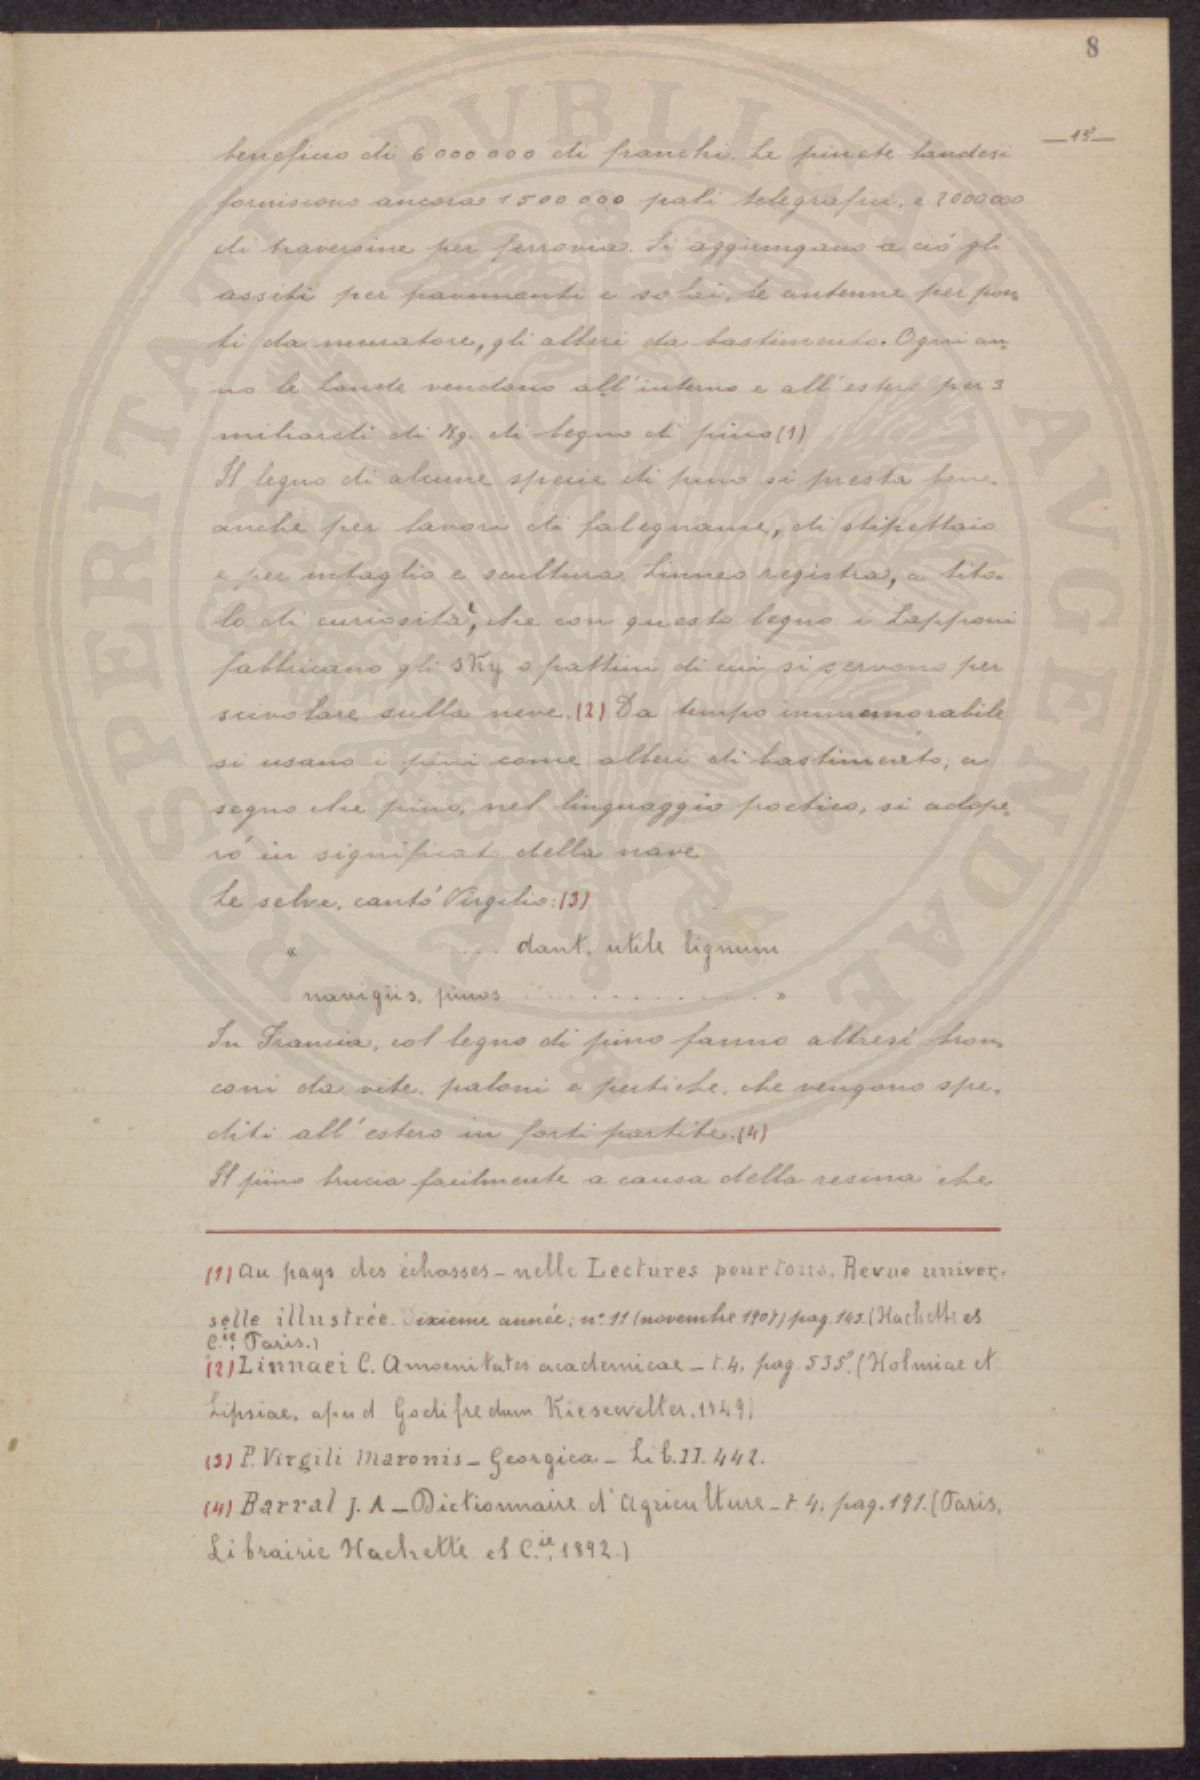 8
—15—
beneficio di 6000000 di franchi. Le pinete landesi
forniscono ancora 1500000 pali telegrafici, e 2000000
di traversine per ferrovia. Si aggiungano a ció gli
assiti per pavimenti e solai, le antenne per pon-
ti da muratore, gli alberi da bastimento. Ogni an-
no le lande vendono all'interno e all'estero per 3
miliardi di Kg. di legno di pino (1)
Il legno di alcune specie di pino si presta bene
anche per lavori di falegname, di stipettaio
e per intaglio e scultura. Linneo registra, a tito-
lo di curiosità, che con questo legno i Lapponi
fabbricano gli sky o pattini di cui si servono per
scivolare sulla neve. (2) Da tempo immemorabile
si usano i pini come alberi di bastimento, a
segno che pino, nel linguaggio poetico, si adope-
ró in significat della nave
Le selve, cantó Virgilio: (3)
« ... dant, utile lignum
navigiis, pinos .............. »
In Francia, col legno di pino fanno altresí tron-
coni da vite, paloni e pertiche, che vengono spe-
diti all'estero in forti partite. (4)
Il pino brucia facilmente a causa della resina che
(1) Au pays des échasses – nelle Lectures pour tous. Revue univer-
selle illustrée. Dixieme année; n.° 11 (novembre 1907) pag. 143. (Hachette et
C.ie, Paris.)
(2) Linnaei C. Amoenitates academicae – t. 4, pag. 535. (Holmiae et
Lipsiae, apud Godifredum Kiesewetter, 1749)
(3) P. Virgili Maronis – Georgica – Lib. II. 442.
(4) Barral J. A – Dictionnaire d'Agriculture – t. 4, pag. 191. (Paris,
Librairie Hachette et C.ie, 1892.)
PROSPERITATI PVBLICAE AVGENDAE